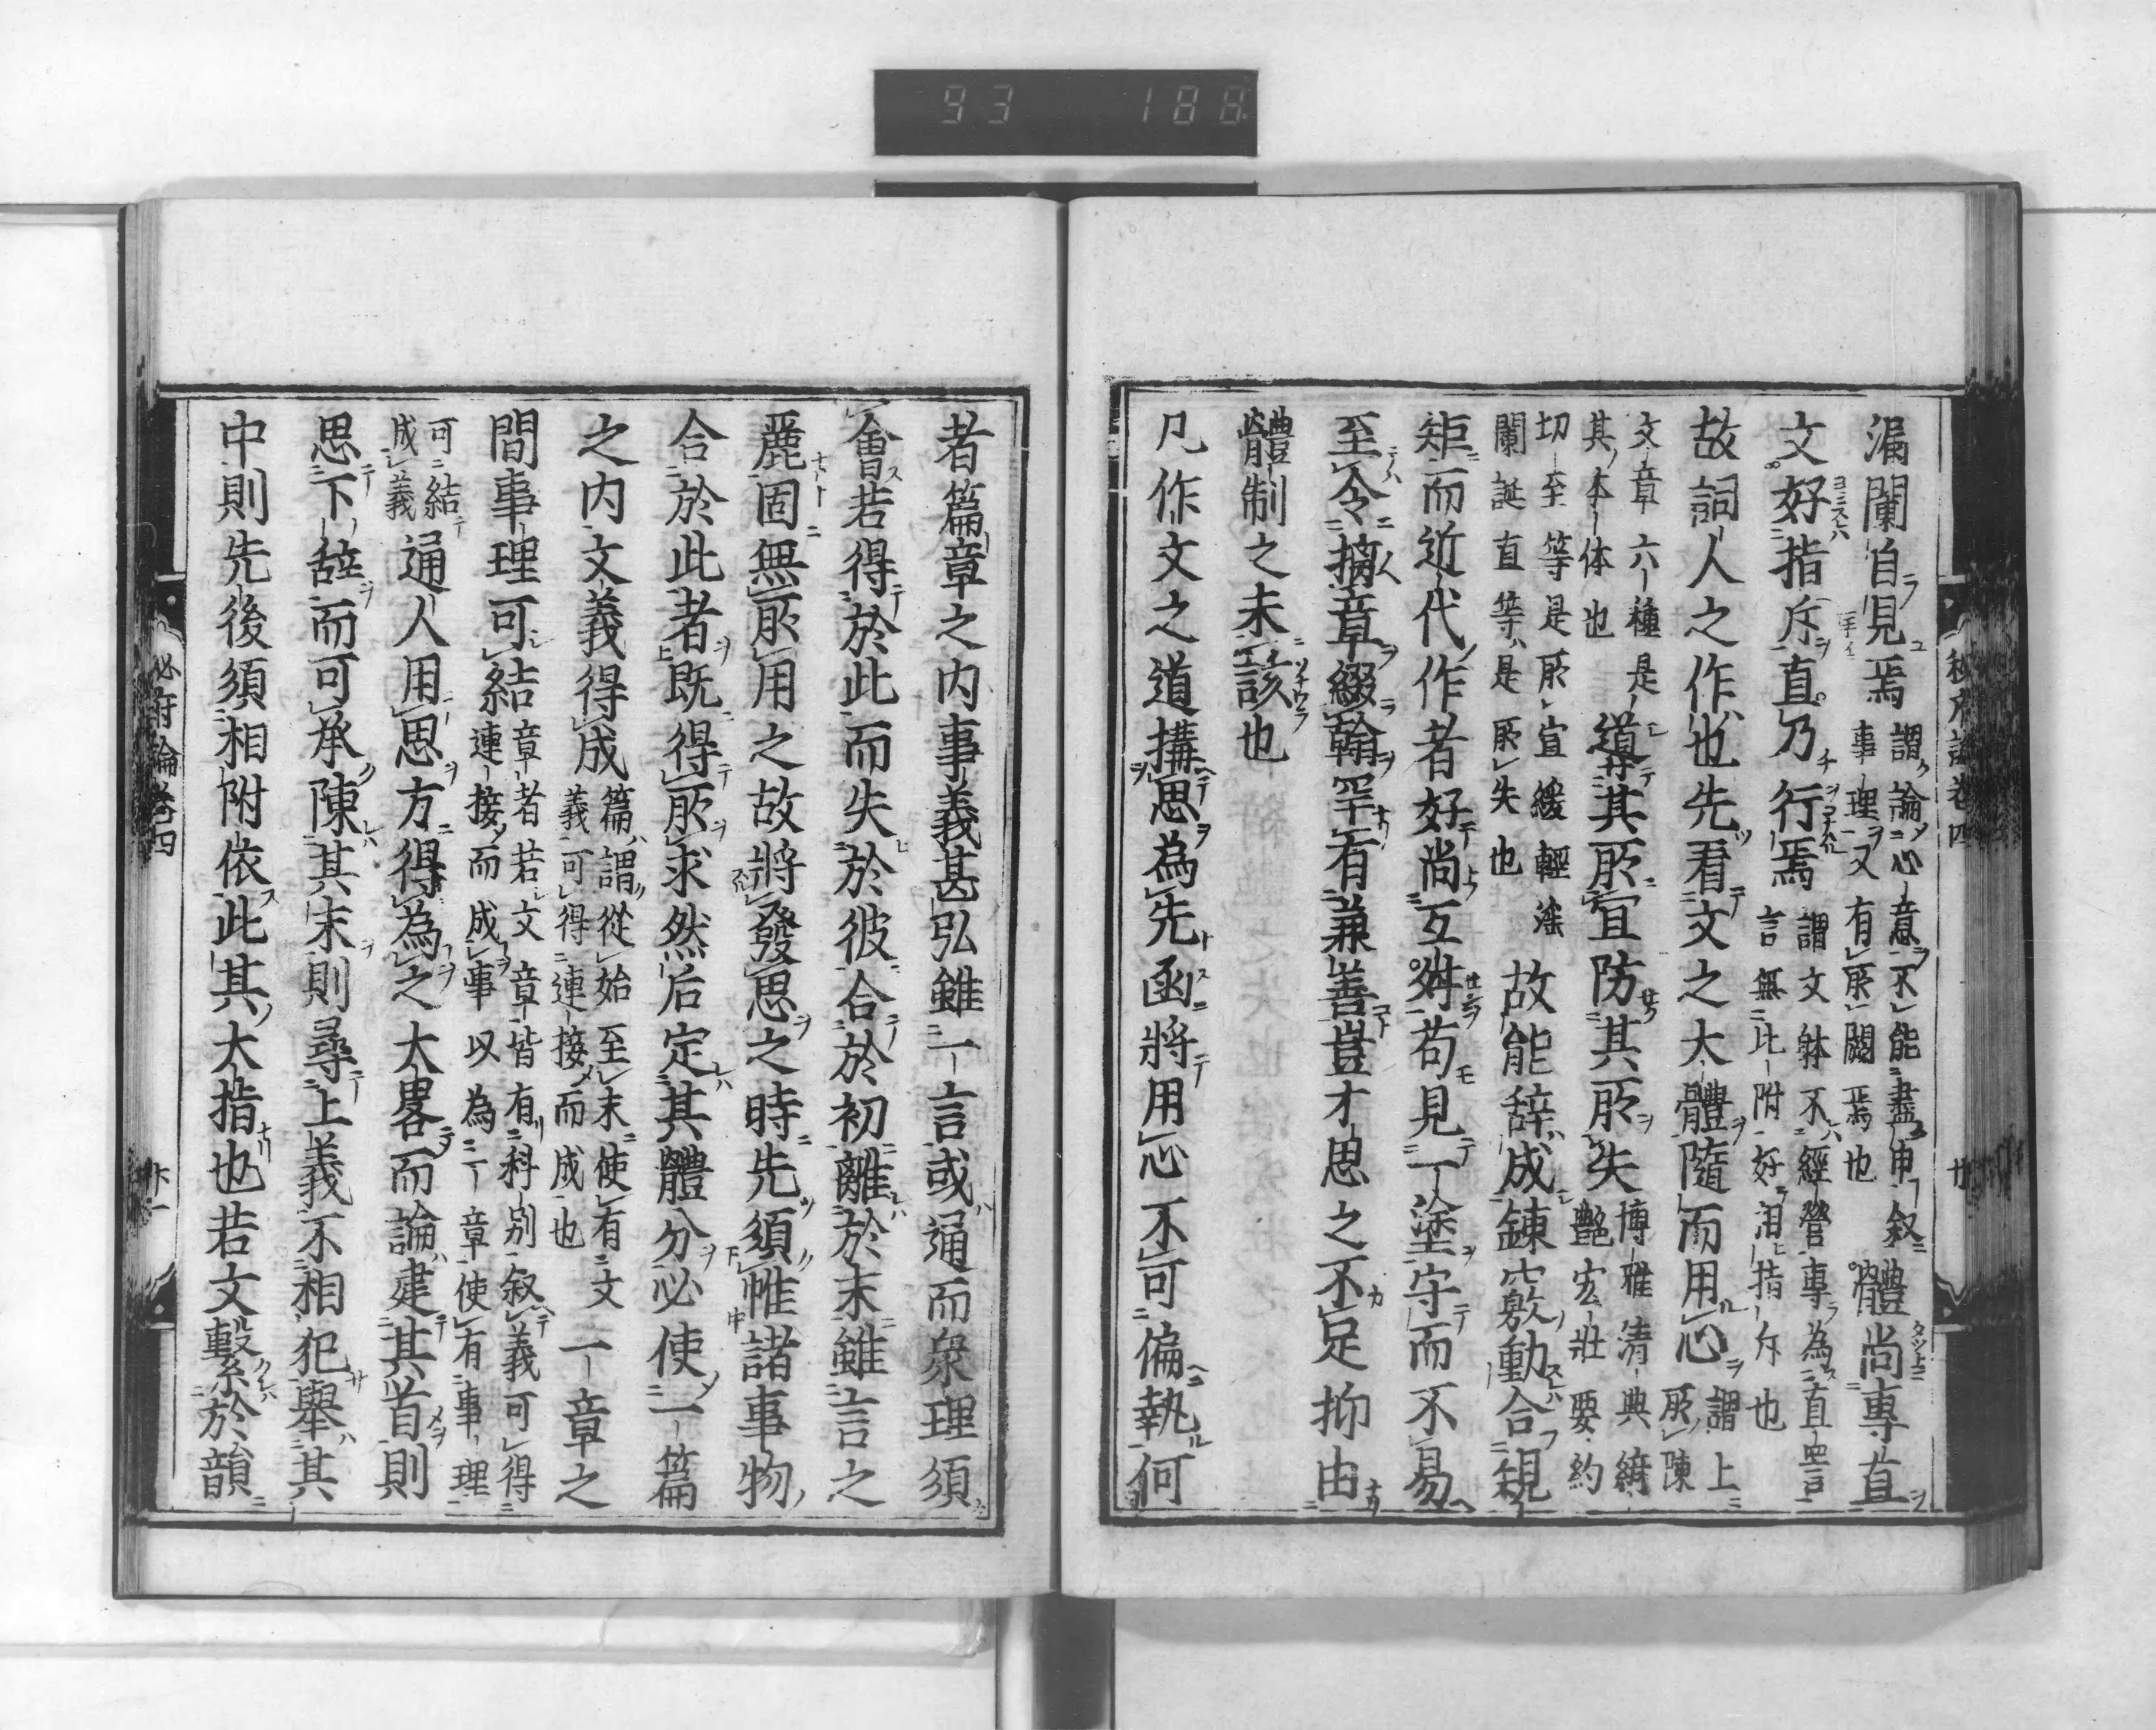 93 188
漏闌自見焉 謂論心意不能盡申叙 事理又有所闕焉也 體尚專直
文好指斥直乃行焉 謂文躰不經營專為直詈 言無比附好相指斥也
故詞人之作也先看文之大體隨而用心 謂上所陳
文章六種是其本体也 遵其所宜防其所失 博雅清典綺艶宏壯要約
切至等是所宜緩輕淫闌誕直等是所失也 故能辞成錬窽動合䂓
矩而近代作者好尚互舛苟見一塗守而不易
至令摛章綴翰罕有兼善豈才思之不足抑由
體制之未該也
凡作文之道搆思為先亟將用心不可偏執何
者篇章之内事義甚弘雖一言或通而衆理須
會若得於此而失於彼合於初離於末雖言之
麗固無所用之故將發思之時先須惟諸事物
合於此者既得所求然后定其體分必使一篇
之内文義得成 篇謂從始至末使有文義可得連接而成也 一章之
間事理可結 章者若文章皆有科別叙義可得連接而成事以為一章使有事理
可結成義 通人用思方得為之大畧而論建其首則
思下辞而可承陳其末則尋上義不相犯舉其
中則先後須相附依此其大指也若文繫於韻
秘府論卷四
廿
秘府論卷四
廿一